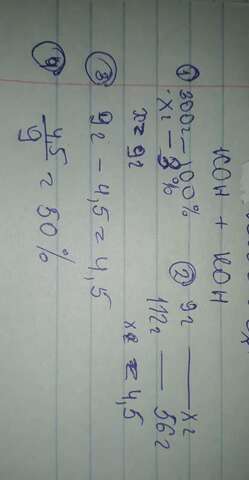 KOH + KOH
① 300г — 100%
xг — 3%
x = 9г
② 9г — xг
112г — 56г
x = 4,5
③ 9г - 4,5 = 4,5
④ 4,5/9 = 50%